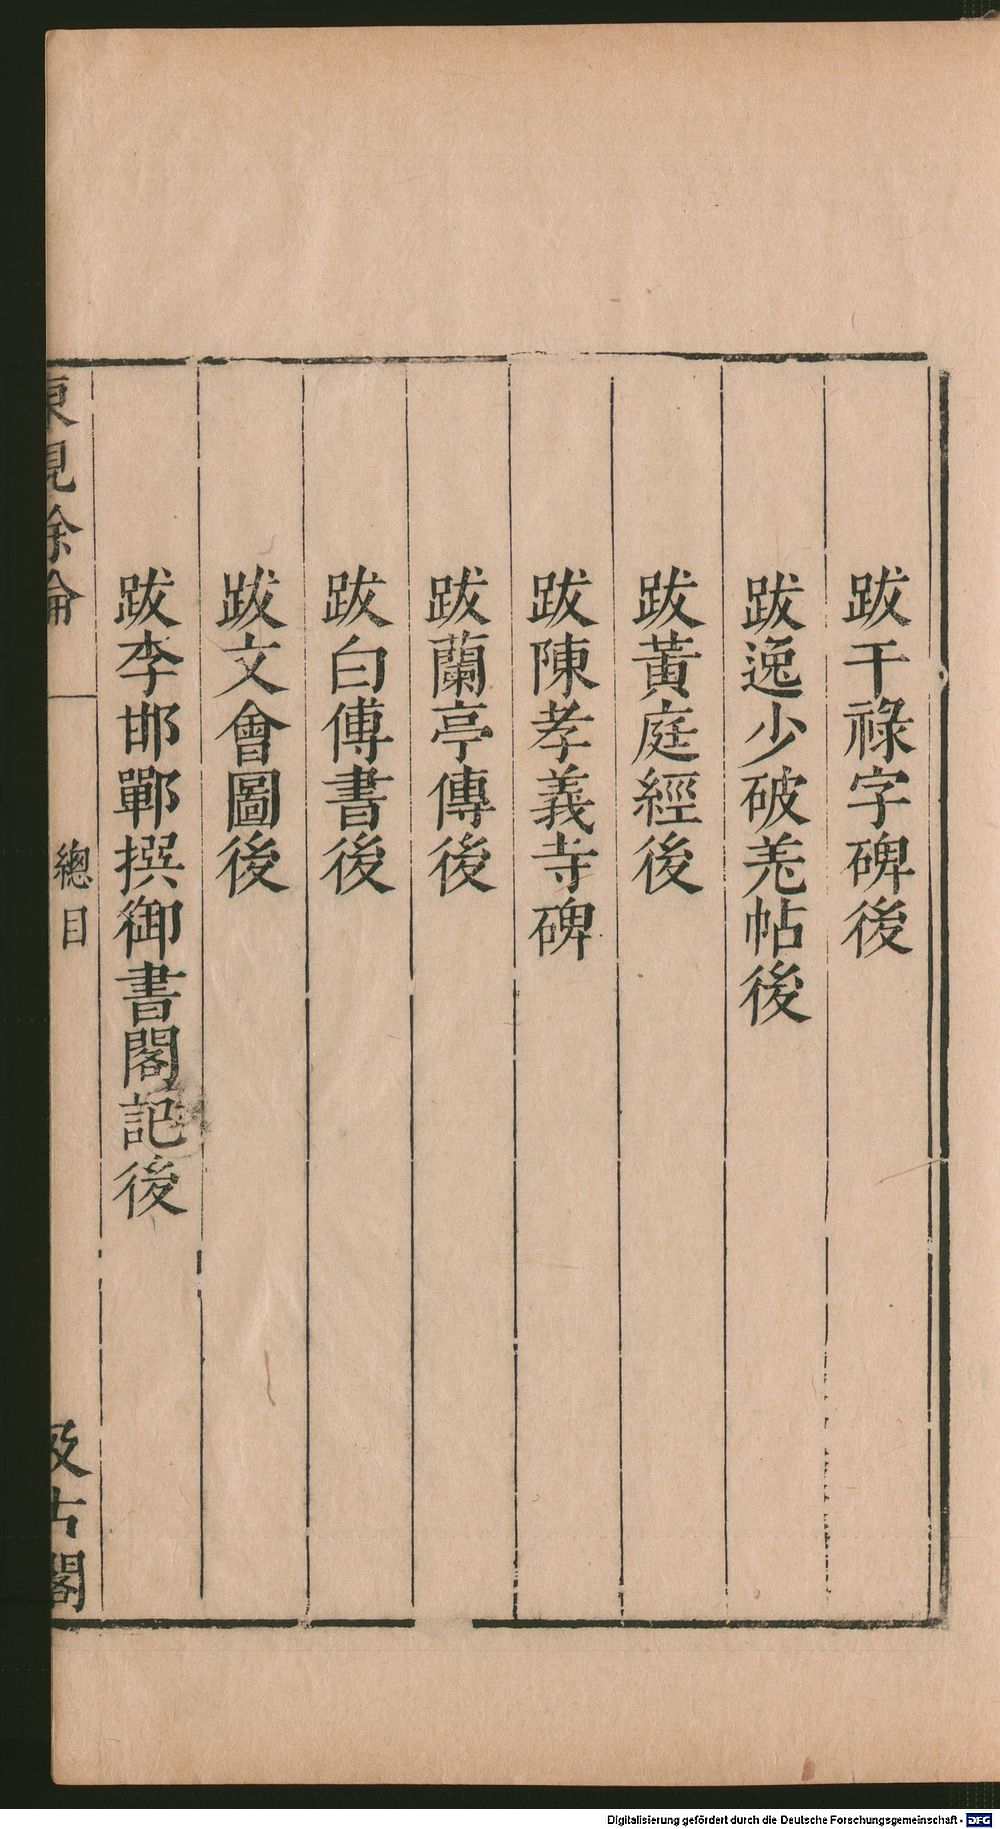 跋干祿字碑後
跋逸少破羗帖後
跋黃庭經後
跋陳孝義寺碑
跋蘭亭傳後
跋白傅書後
跋文會圖後
跋李邯鄲撰御書閣記後
東觀餘論
總目
汲古閣
Digitalisierung gefördert durch die Deutsche Forschungsgemeinschaft - DFG